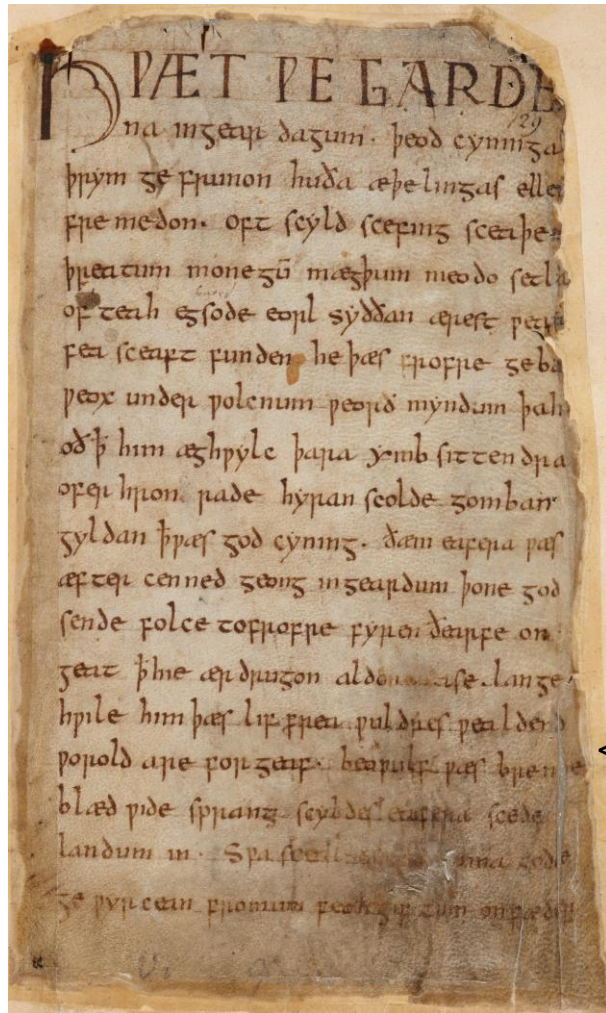 HǷÆT ǷE GARDE
na ingear dagum. þeod cyninga
þrym ge frunon huða æþelingas elle
fre medon. oft scyld scefing sceaþe
þreatum monegū mægþum meodo setla
of teah egsode eorl syððan ærest ƿear
fea sceaft funden he þæs frofre geba
ƿeox under ƿolcnum ƿeorð myndum þah
oð ꝥ him æghƿylc þara ymb sittendra
ofer hron rade hyran scolde gomban
gyldan ꝥ ƿæs god cyning. ðæm eafera ƿæs
æfter cenned geong in geardum þone god
sende folce tofrofre fyren ðearfe on
geat ꝥ hie ær drugon aldor ase. lange
hƿile him þæs lif frea ƿuldres ƿealdend
ƿorold are for geaf. beoƿulf ƿæs breme
blæd ƿide sprang scyldes eafera scede
landum in. Sƿa gode
ge ƿyrcean fromum feoh giftum on fæder
129